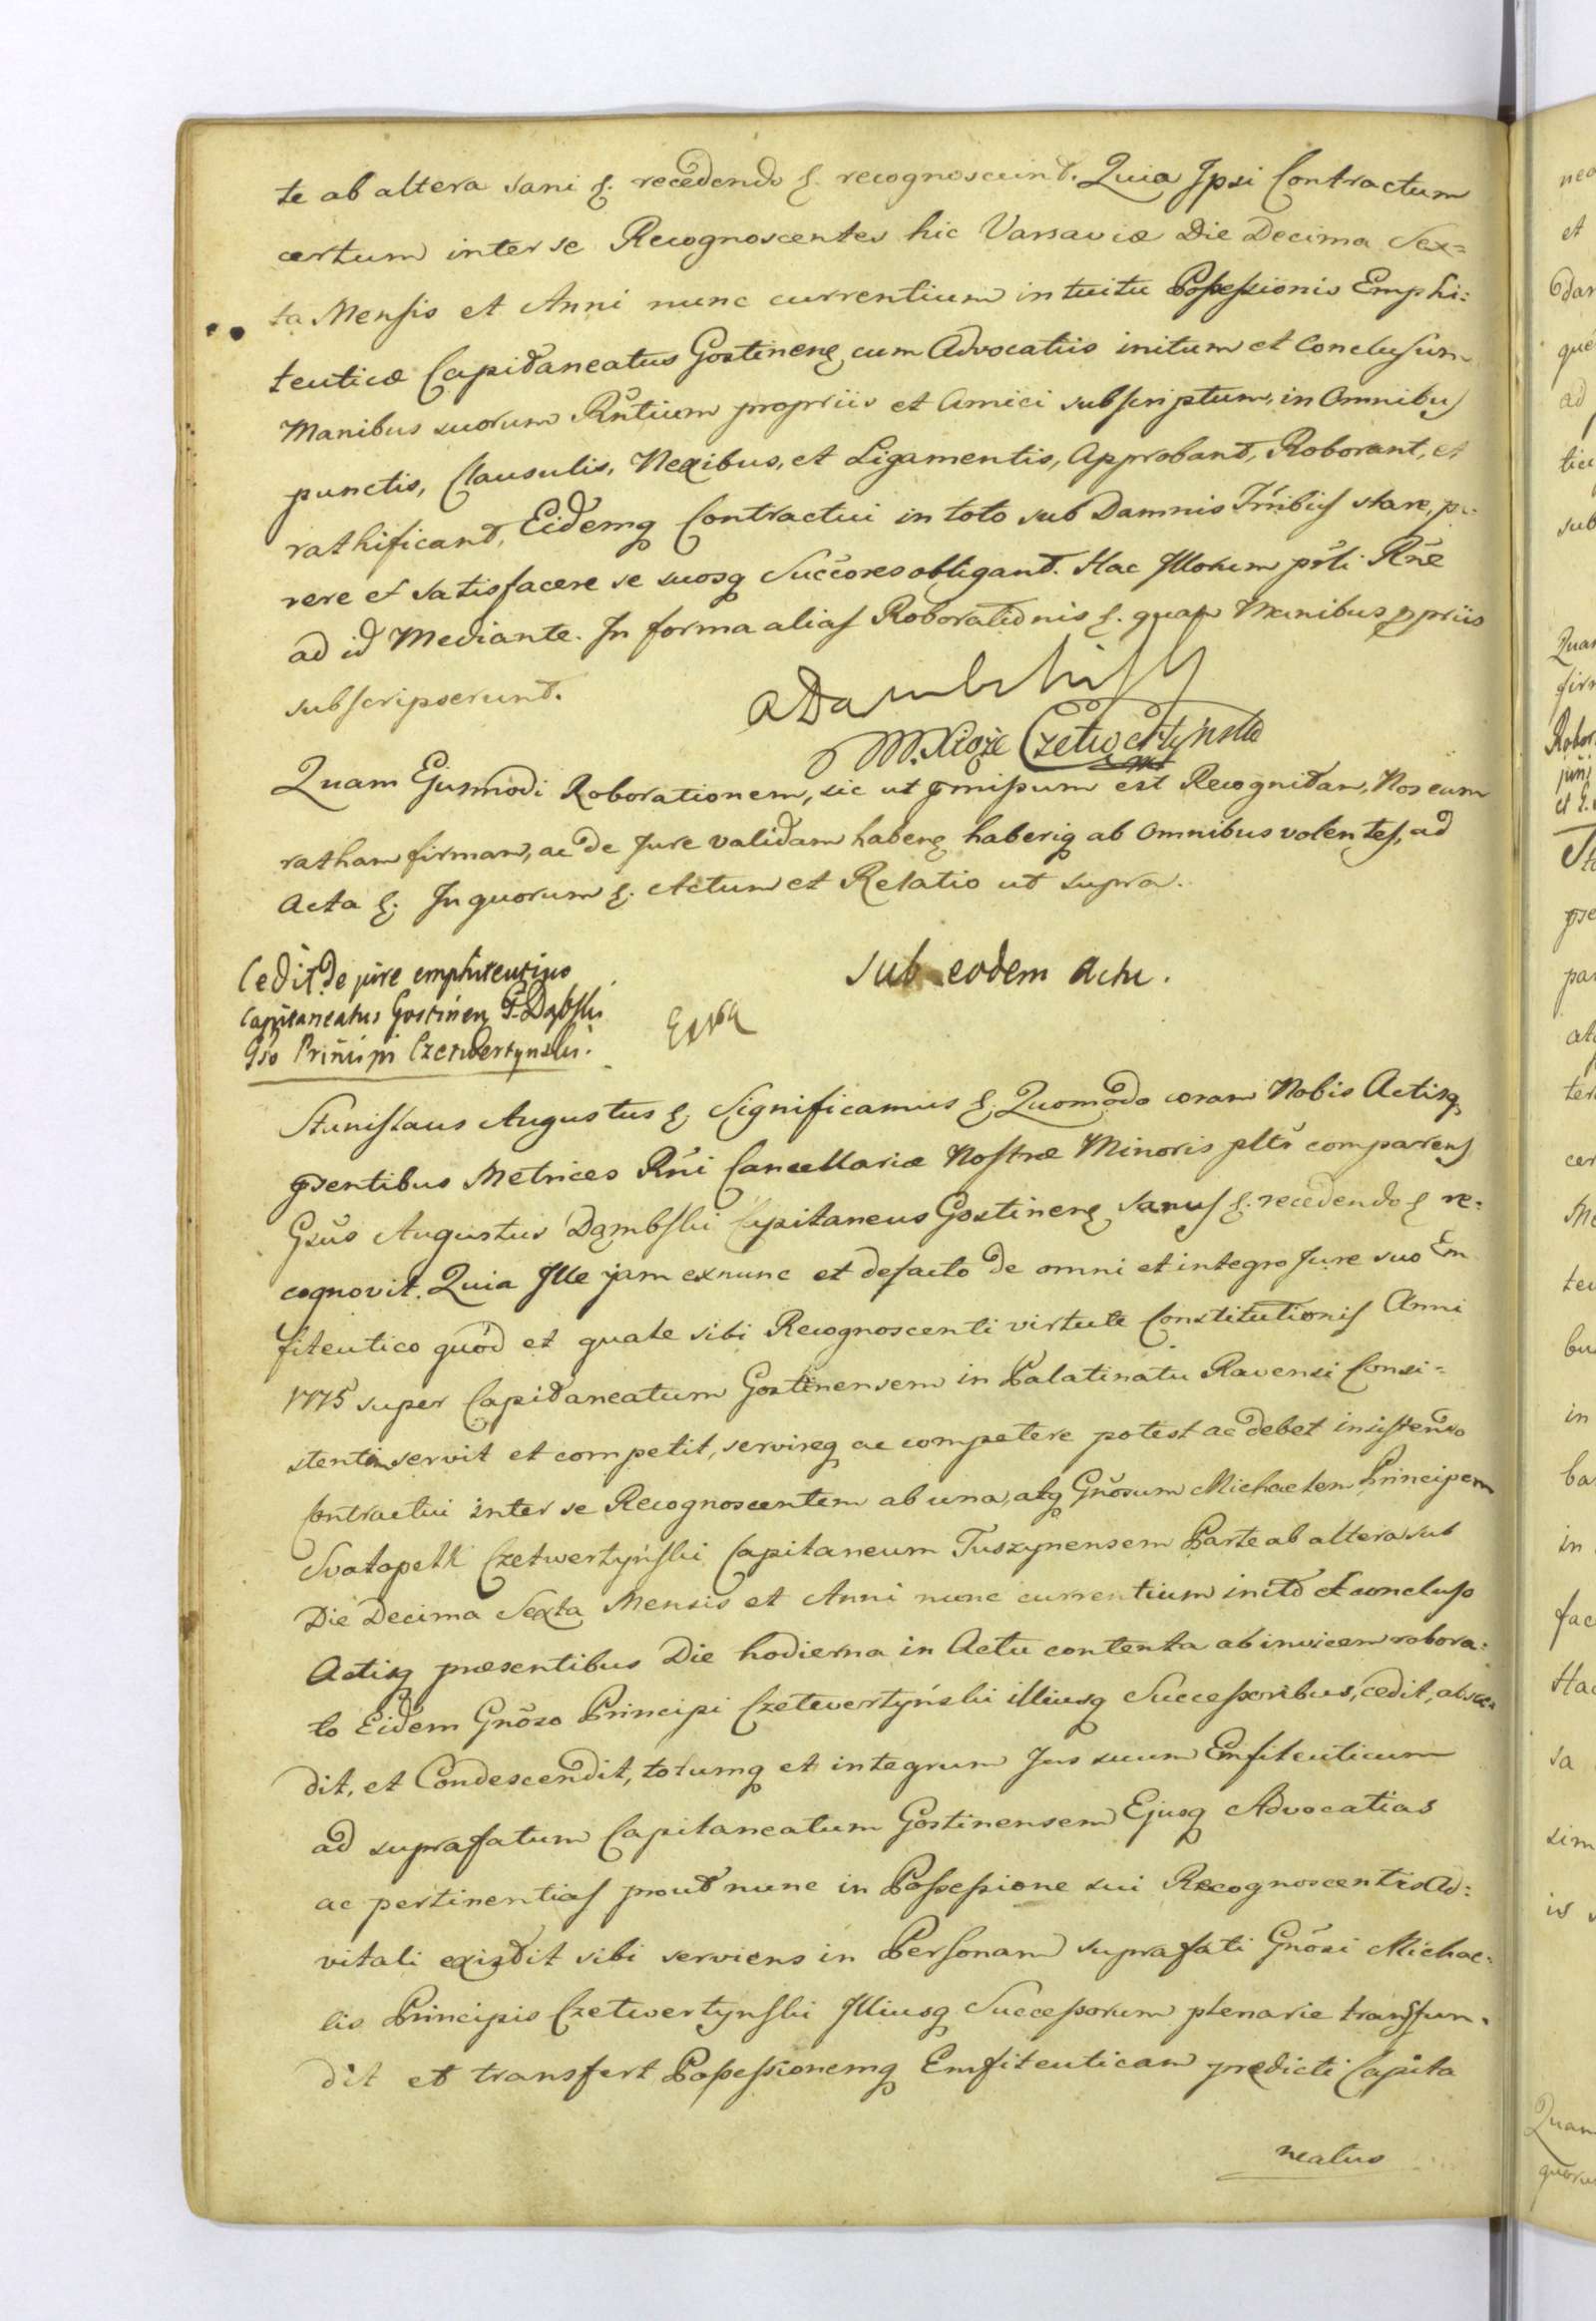 te ab altera sani &. recedendo &. recognoscunt. Quia Ipsi Contractum
certum inter se Recognoscentes hic Varsaviæ Die Decima Sex=
ta Mensis et Anni nunc currentium intuitu Possessionis Emphi=
teuticæ Capitaneatus Gostinen: cum Advocatiis initum et Conclusum
Manibus suorum Rñtium propriis et Amici subscriptum, in Omnibus
punctis, Clausulis, Nexibus, et Ligamentis, Approbant, Roborant, et
rathificant, Eidemq Contractui in toto sub Damnis Trñibus stare, pa=
rere et satisfacere se suosq Succores obligant. Hac Illorum pñti Rñe
ad id Mediante. In forma alias Roborationis &. quam Manibus ppriis
subscripserunt.
ADambski
M. Xiąże Czetwertyński
Quam Ejusmodi Roborationem, sic ut pmissum est Recognitam, Nos eum
ratham firmam, ac de Jure validam habere haberiq ab Omnibus volentes, ad
Acta &. In quorum &. Actum et Relatio ut supra.
Sub eodem Actu.
Cedit de jure emphiteutico
Capitaneatus Gostinen G. Dąbski
Gso Principi Czetwertyński.
Stanislaus Augustus &. Significamus &. Quomodo coram Nobis Actisq
psentibus Metrices Rñi Cancellariæ Nostræ Minoris pltr comparens
Gsus Augustus Dąmbski Capitaneus Gostinen: sanus &. recedendo &. re=
cognovit. Quia Ille jam exnunc et defacto de omni et integro Jure suo Em
fiteutico quod et quale sibi Recognoscenti virtute Constitutionis Anni
1775 super Capitaneatum Gostinensem in Palatinatu Ravensi Consi=
stentem servit et competit, servireq ac competere potest ac debet insistendo
Contractui inter se Recognoscentem ab una, atq Gñosum Michaelem Principem
Svatopelk Czetwertyński Capitaneum Tuszynensem Parte ab altera sub
Die Decima Sexta Mensis et Anni nunc currentium inito et concluso
Actisq præsentibus Die hodierna in Actu contenta ab invicem robora=
to Eidem Gñoso Principi Czetwertyński illiusq Successoribus, cedit, absce=
dit, et Condescendit, totumq et integrum Jus suum Emfiteuticum
ad suprafatum Capitaneatum Gostinensem Ejusq Advocatias
ac pertinentias prout nunc in Possessione sui Recognoscentis Ad=
vitali existit sibi serviens in Personam suprafati Gñosi Michae=
lis Principis Czetwertynski Illiusq Successorum plenarie transfun=
dit et transfert Possessionemq Emfiteuticam prædicti Capita
neatus